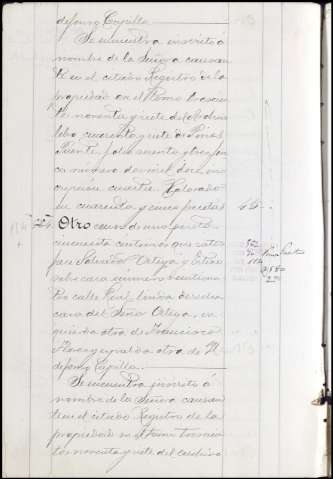 defonso Capilla
Se encuentra inscrito á
nombre de la Señora causan
te en el citado Registro de la
propiedad en el tomo trescien
tos noventa y siete del
libro cuarenta y siete de Pinos
Puente, folio
ca número dos mil doce, ins
cripcion cuarta. Valorado
en cuarenta y cinco pesetas 45
Otro censo de una peseta
cincuenta centimos que satis
face Salvador Ortega y Esteva
sobre casa número veintiuno
Por calle Real, linda derecha
casa del Señor Ortega, iz
quierda otra de Francisco
Flores y espalda otra de Il
defonso Capilla.
Se encuentra inscrito á
nombre de la Señora causan
te en el citado Registro de la
propiedad en el tomo trescien
tos noventa y siete del archivo